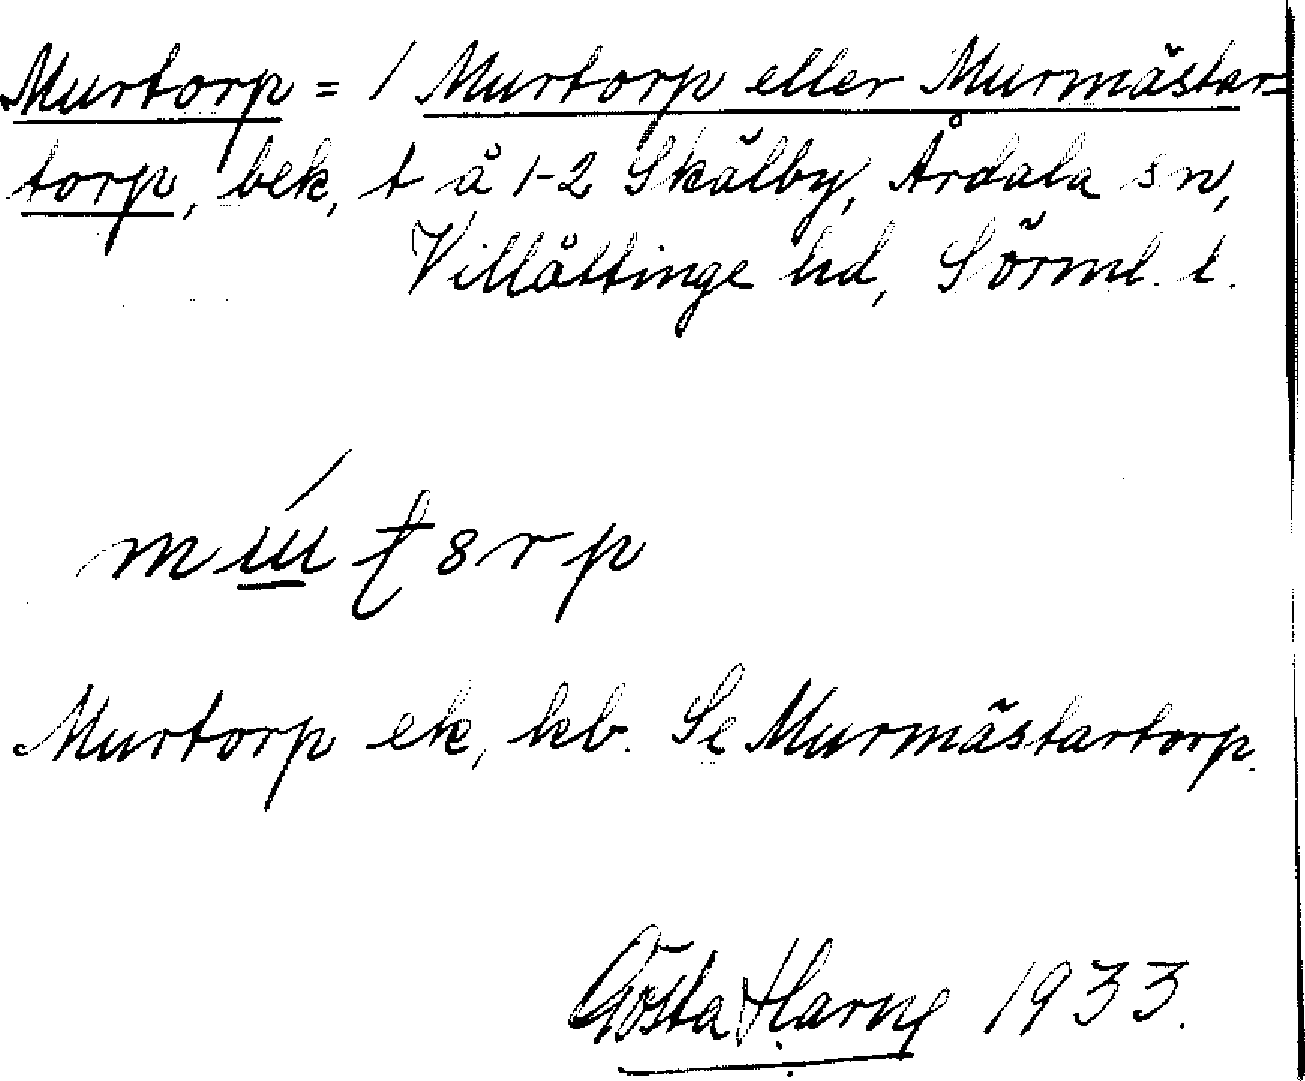 Murtorp = / Murtorp eller Murmästar-
torp, bek, t å 1-2 Skälby, Årdala sn,
Villåttinge hd, Sörml. l.
Murtorp ek, kb. Se Murmästartorp.
Gösta Harne 1933.